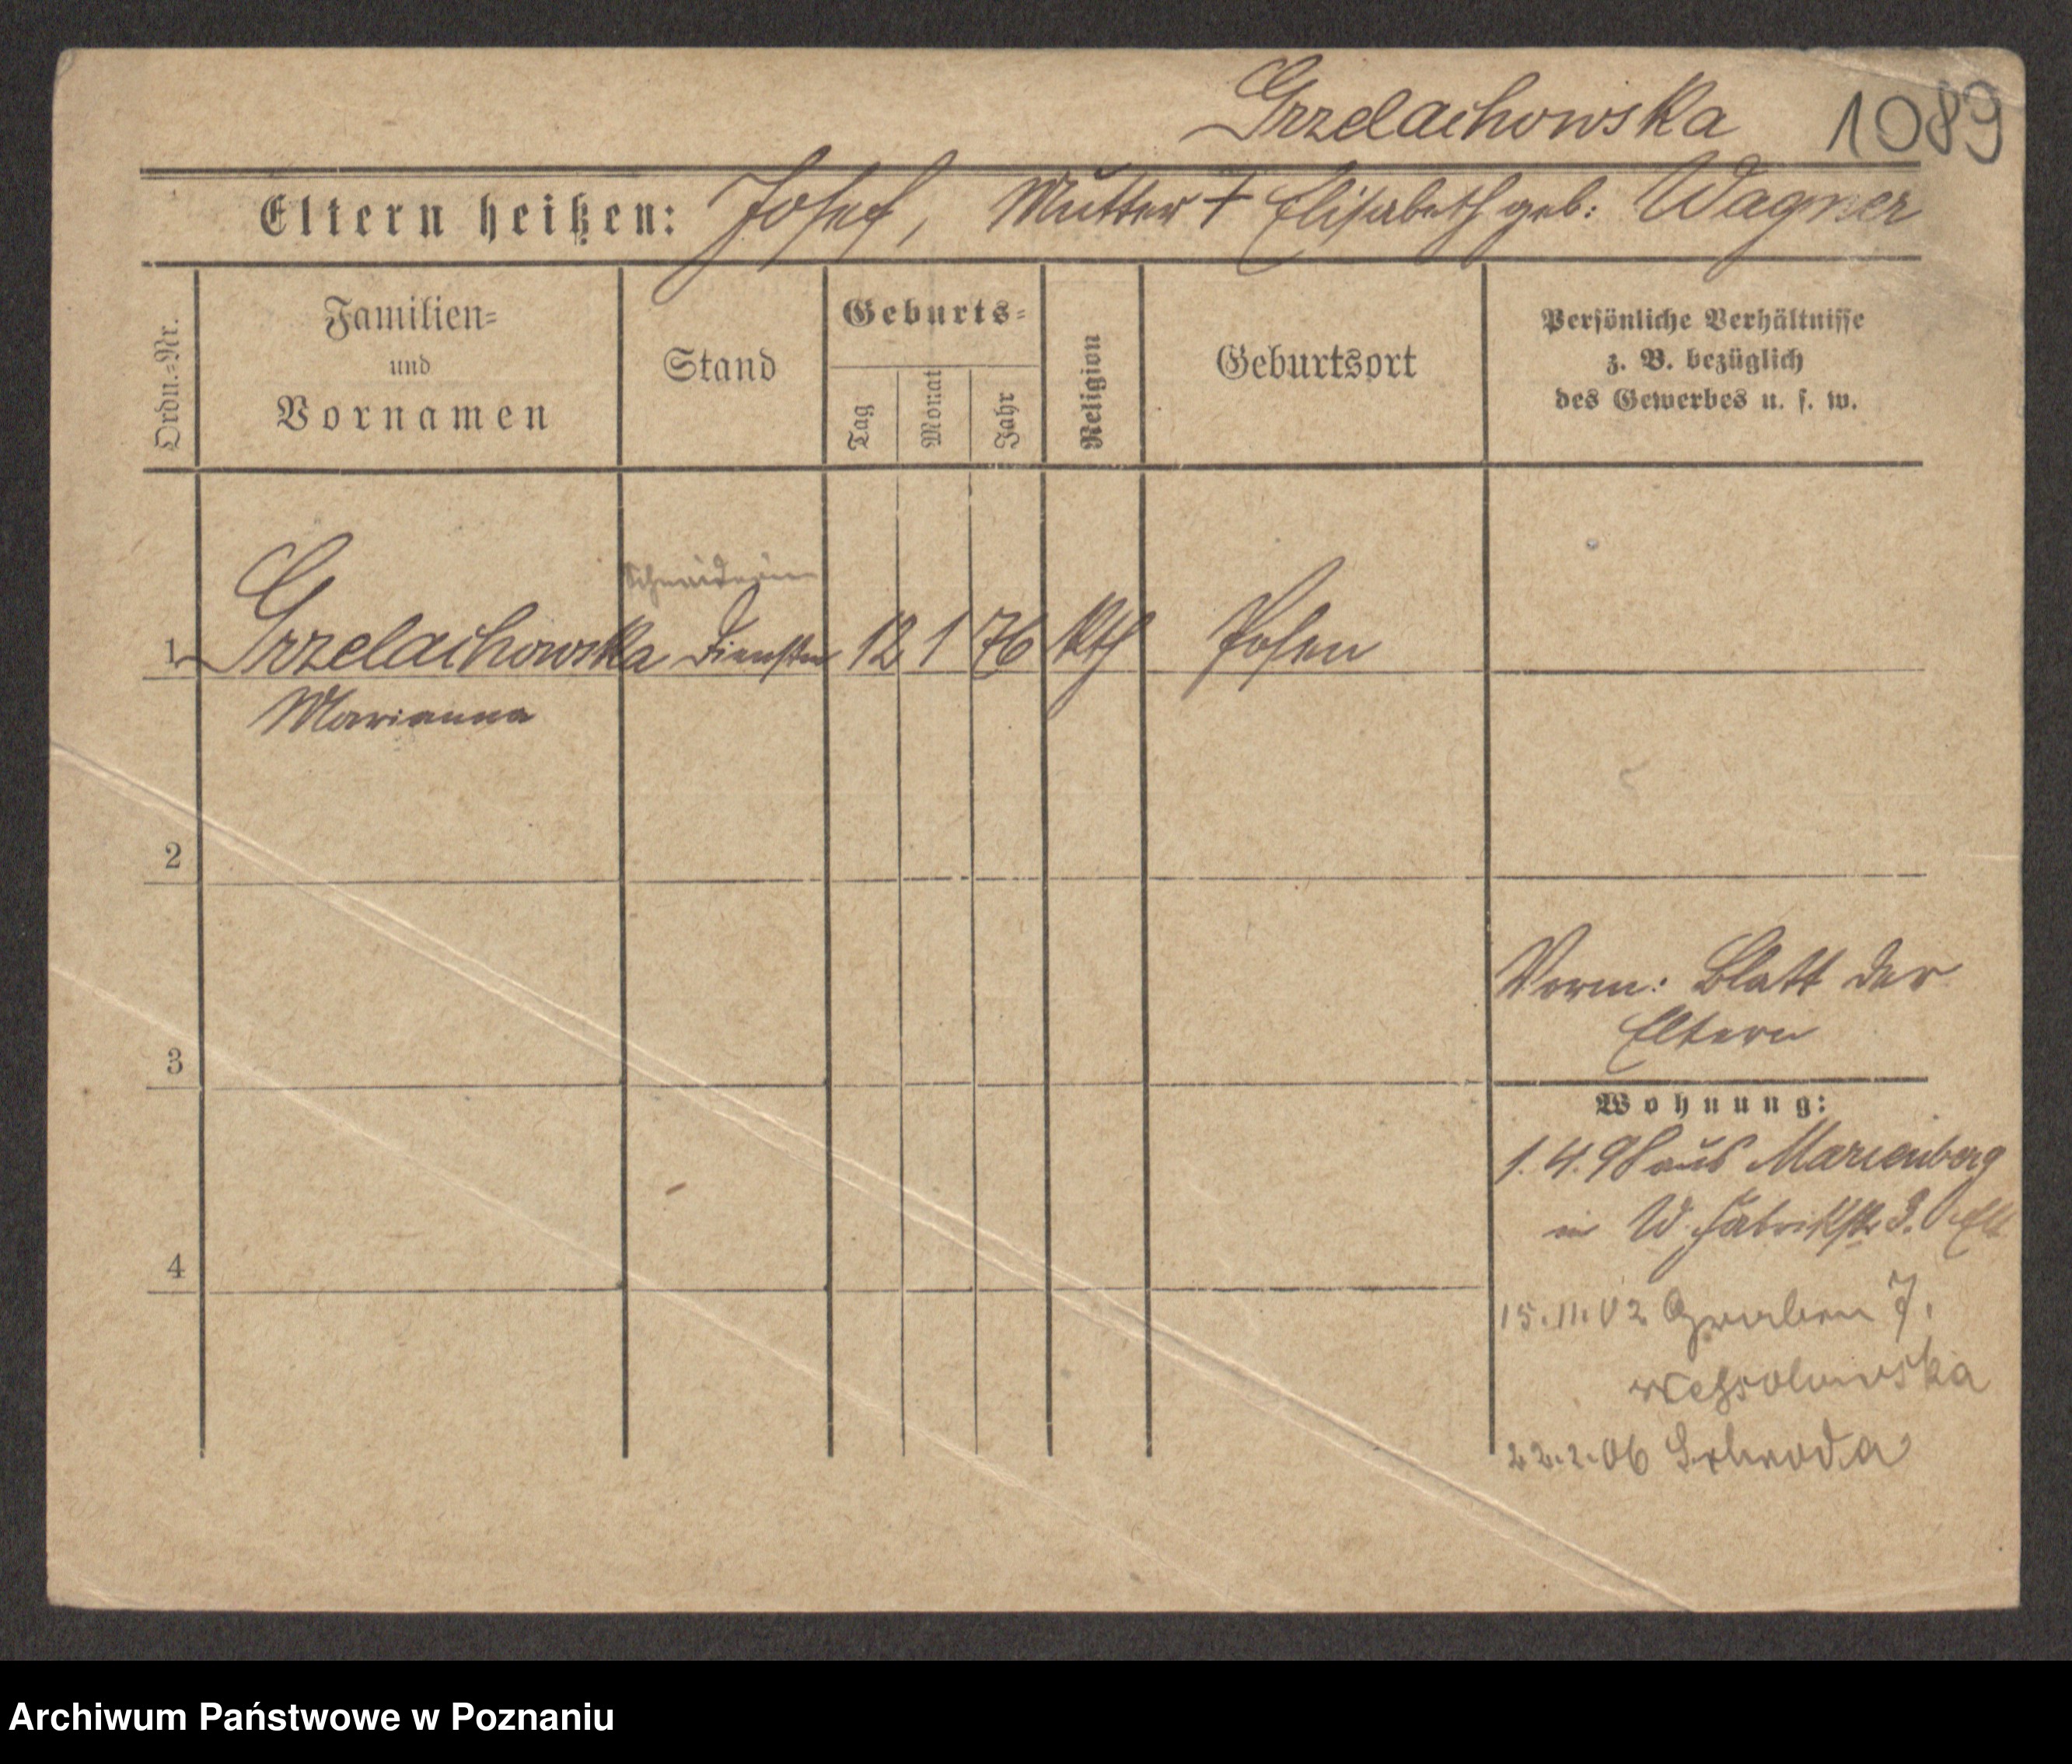 Grzelachowska 1089
Eltern heißen: Josef, Mutter † Elisabeth geb: Wagner
Ordn.-Nr.
Familien=
und
Vornamen
Stand
Geburts=
Tag
Monat
Jahr
Religion
Geburtsort
Persönliche Verhältnisse
z. B. bezüglich
des Gewerbes u. s. w.
Schneiderin
1 Grzelachowska 12 1 76 kth Posen
Marianna
2
Vorm: Blatt der
Eltern
3
Wohnung:
1.4.98 aus Marienberg
in W. Fabrikstr 3.
4
15.11.02 Graben 7.
Wessolowska
22.2.06 Schroda
Archiwum Państwowe w Poznaniu